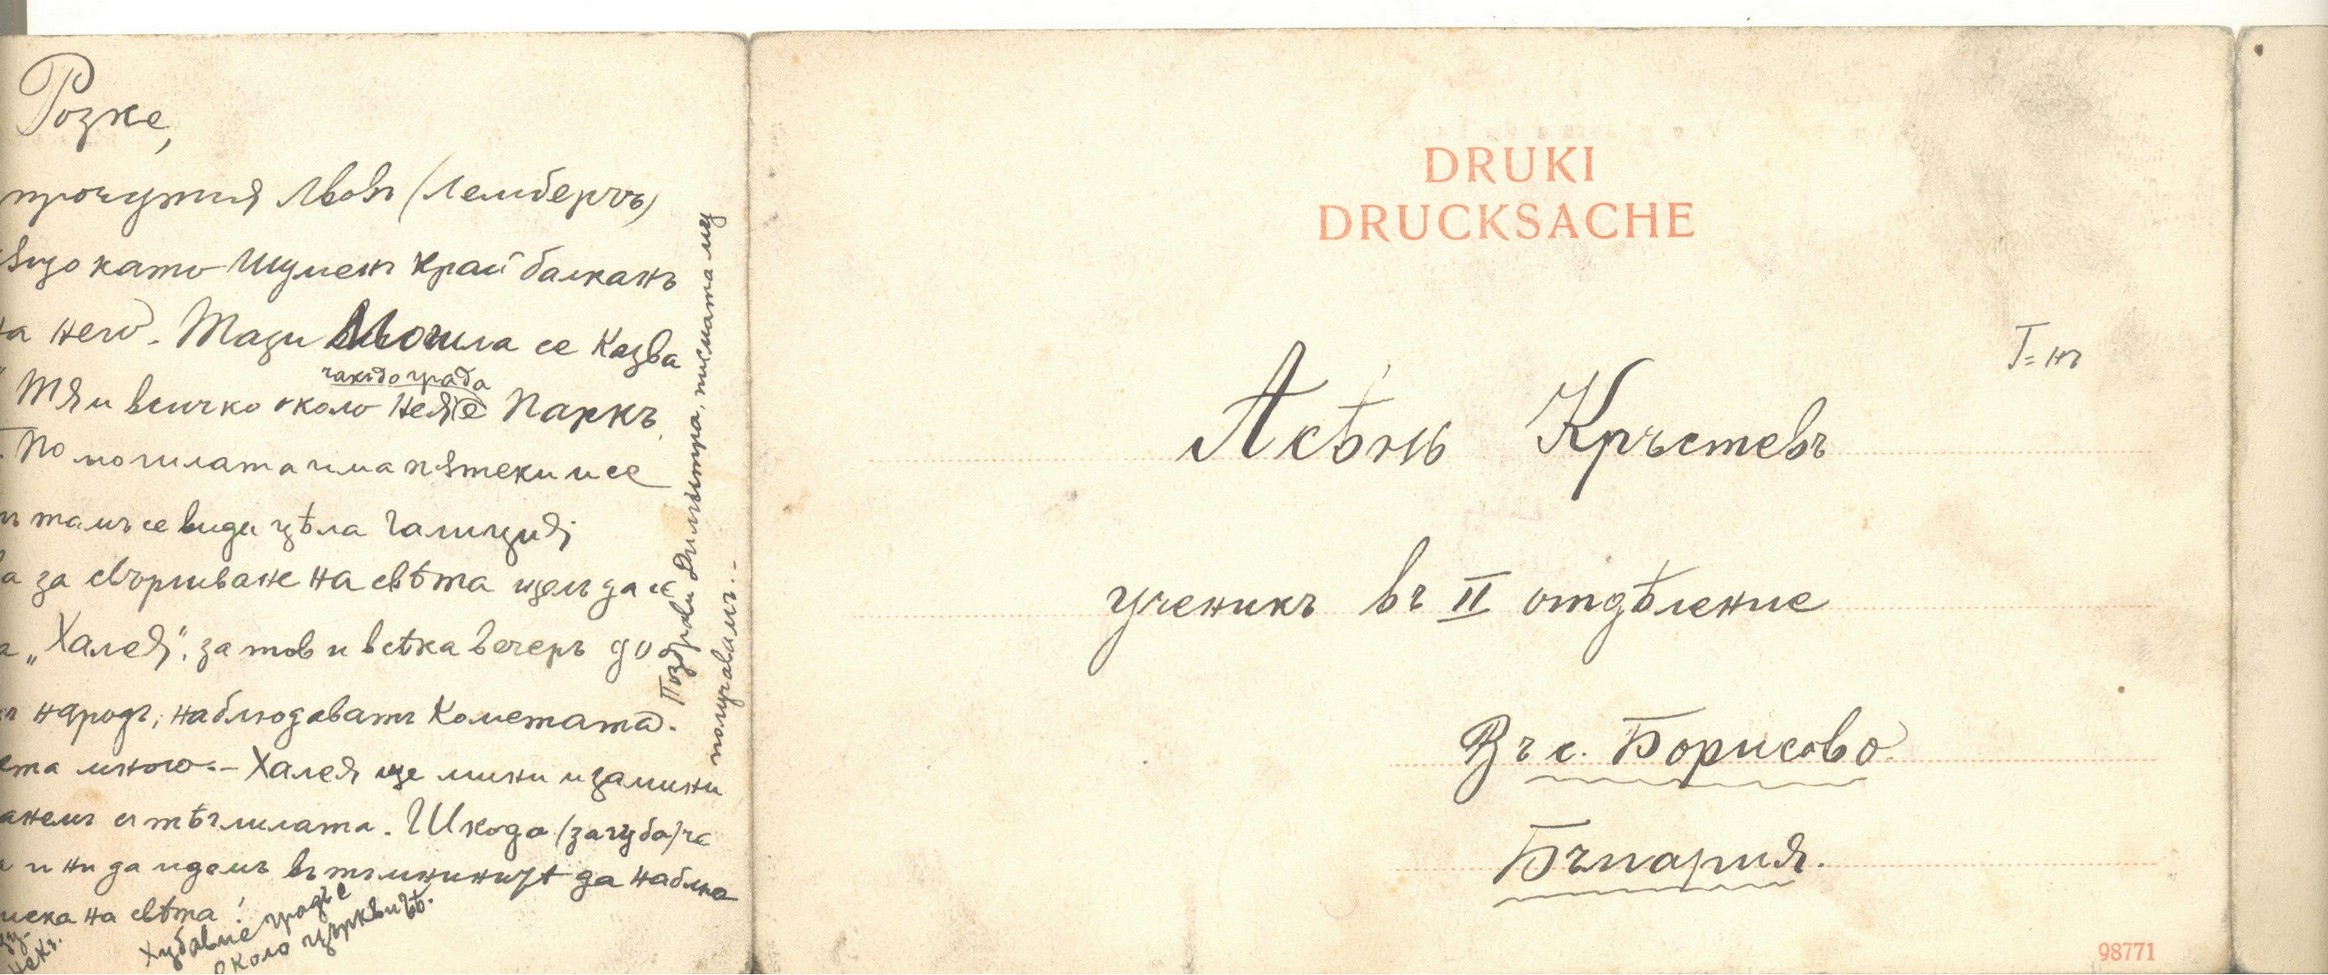 Розке,
прочутия Лвовъ (Лембергъ)
като Шуменъ край балканъ
на него. Тази Могила се казва
града
Тя и всичко около нея е Паркъ.
По могилата има пѫтеки и се
тамъ се види цѣла Галиция;
за свършване на свѣта щелъ да се
„Халея“, затов и всѣка вечеръ до
народъ, наблюдаватъ Кометата.
много.– Халея ще мини и замини
тѣглилата. Шкода (загуба) че
и ни да идемъ въ да наблю
на свѣта!
Хубавие градъ е
около църквитѣ.
Поздрави Димитра, писмата му
получавамъ...
DRUKI
DRUCKSACHE
Г-нъ
Асѣнъ Кръстевъ
ученикъ въ II отдѣление
Въ с. Борисово.
Бълария.
98771